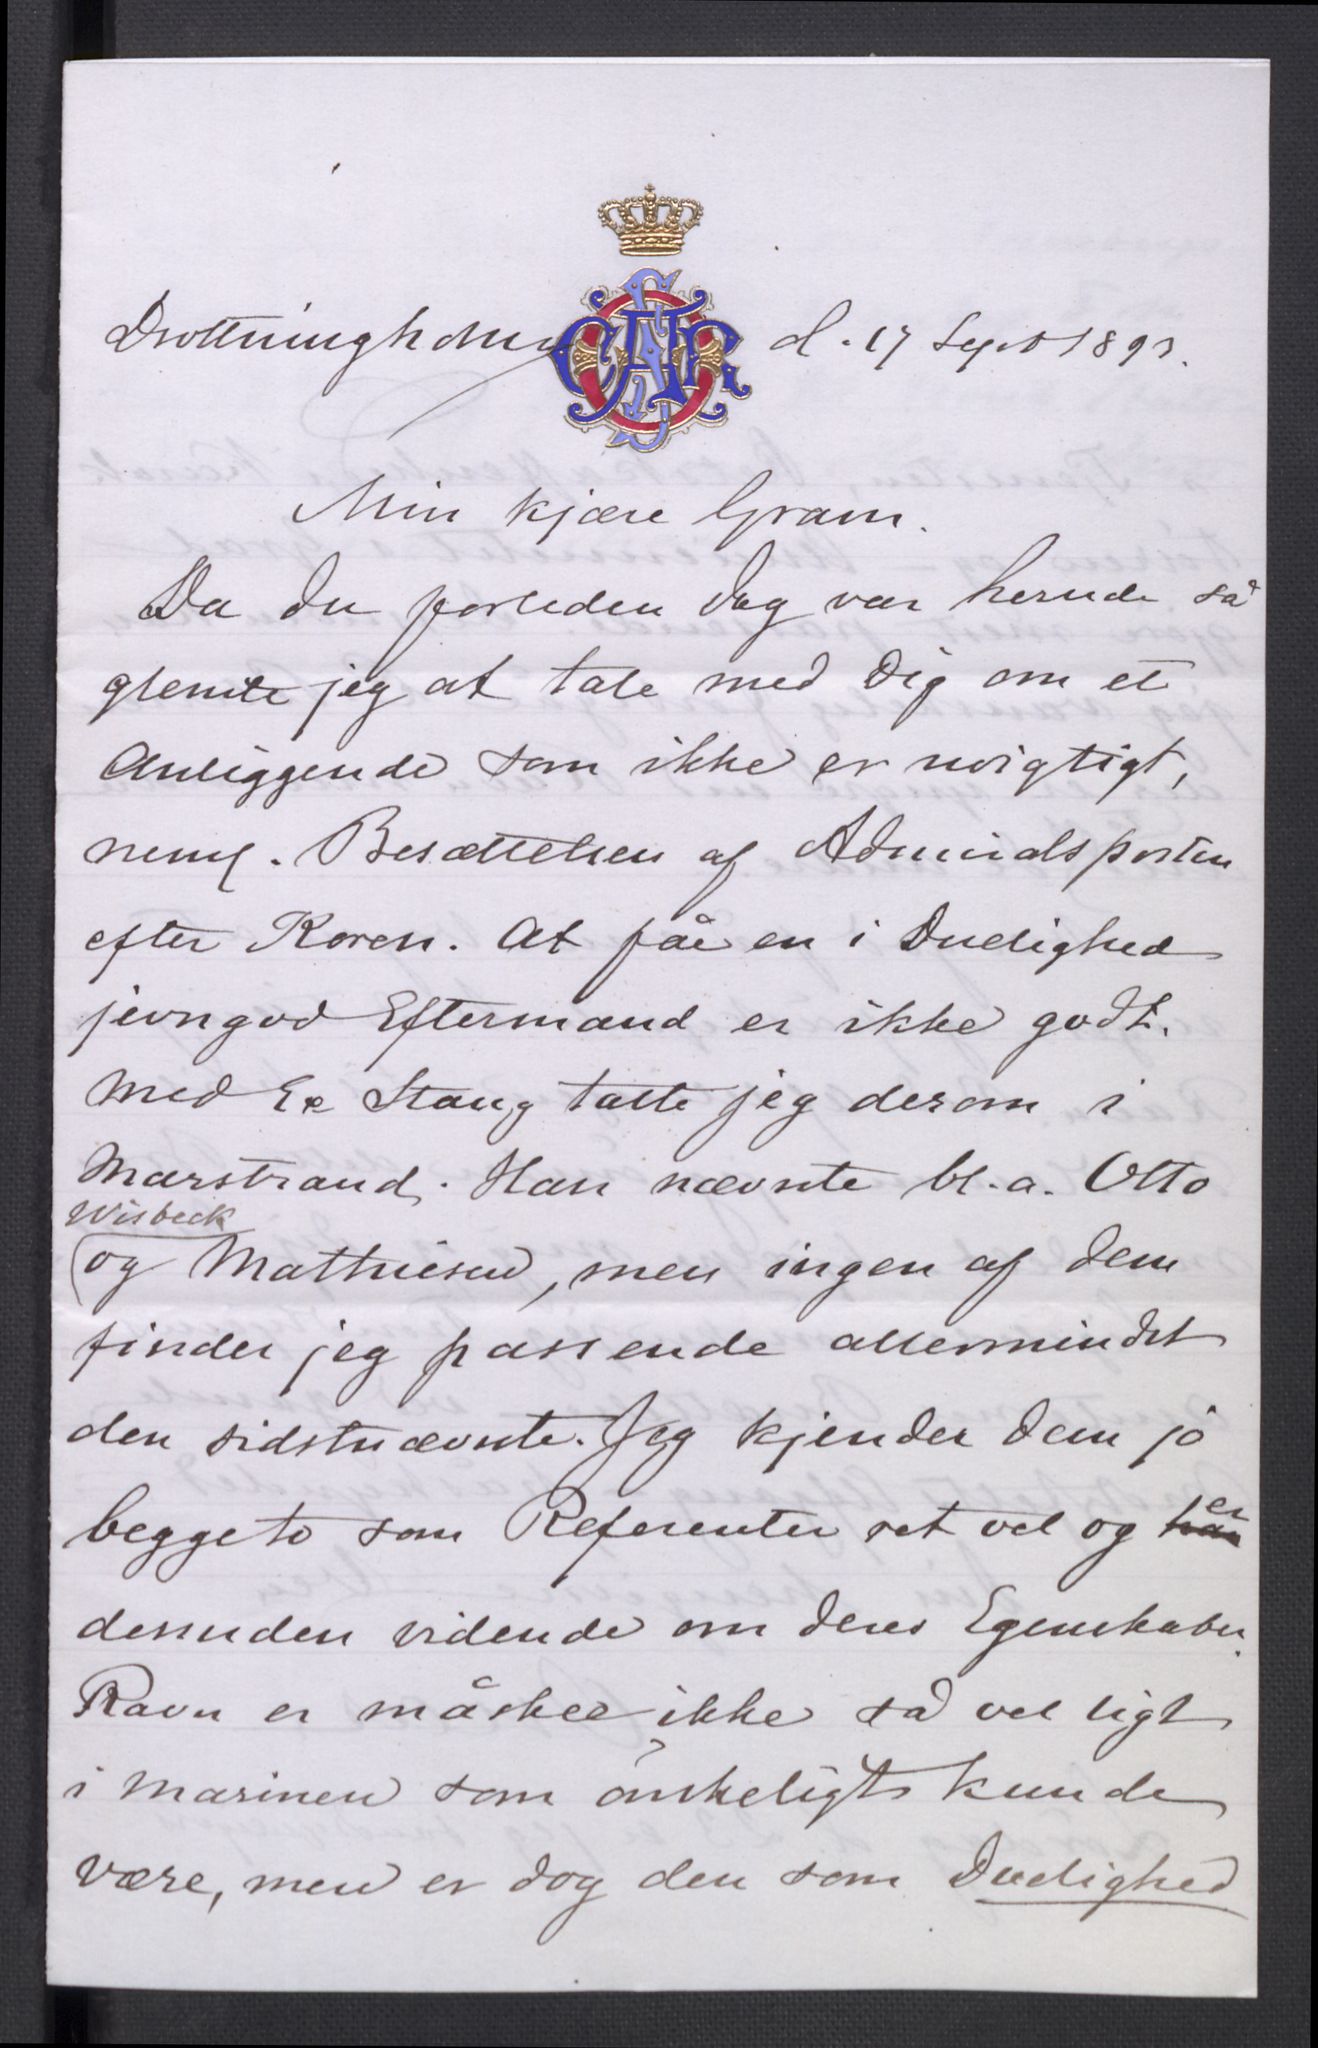 Drottningholm d. 17 Sept 1893.
Min kjære Gram.
Da du forleden Dag var herude så
glemte jeg at tale med Dig om et
Anliggende som ikke er uvigtigt,
neml. Besættelsen af Admiralsposten
efter Koren. At få en i Duelighed
jevngod Eftermand er ikke godt.
Med Ex Stang talte jeg derom i
Marstrand. Han nævnte bl.a. Otto
Wisbeck
og Mathiesen, men ingen af dem
finder jeg passende allermindst
den sidstnævnte. Jeg kjender dem jo
begge to som Referenter ret vel og er
desuden vidende om deres Egenskaber.
Ravn er måskee ikke så vel ligt
i Marinen som önskeligt kunde
være, men er dog den som Duelighed